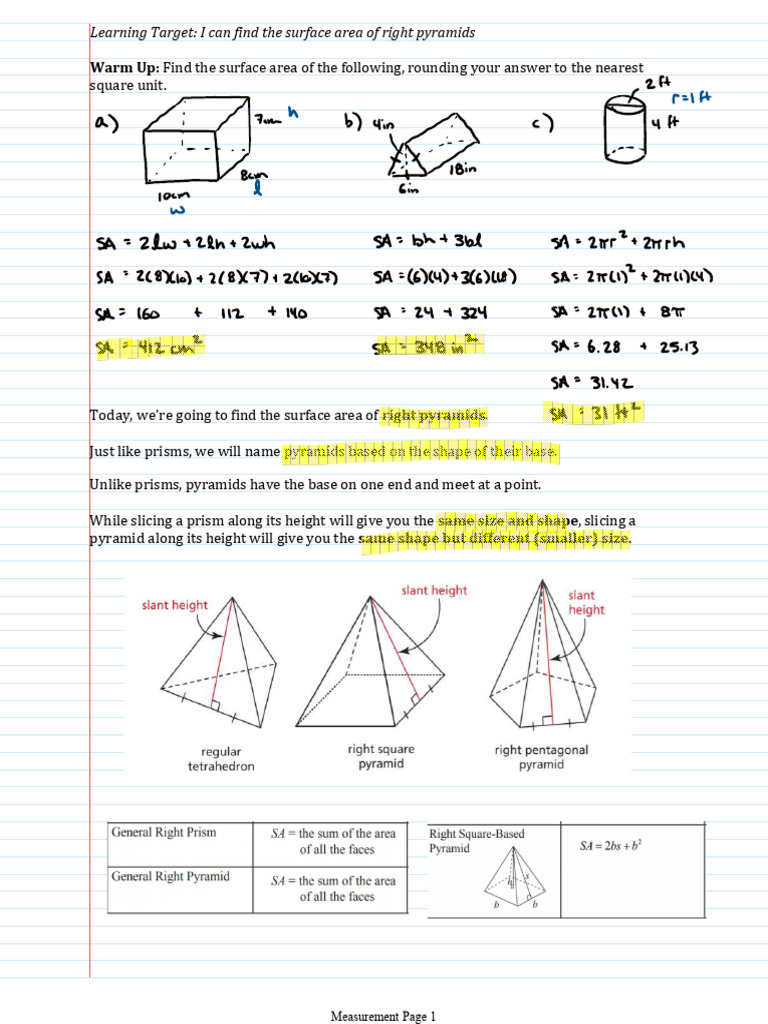 Learning Target: I can find the surface area of right pyramids
Warm Up: Find the surface area of the following, rounding your answer to the nearest
square unit.
a)
7cm h
8cm
l
10cm
w
b)
4in
18in
6in
c)
2 ft
r=1 ft
4 ft
SA = 2lw + 2lh + 2wh
SA = 2(8)(10) + 2(8)(7) + 2(10)(7)
SA = 160 + 112 + 140
SA = 412 cm²
SA = bh + 3bl
SA = (6)(4) + 3(6)(18)
SA = 24 + 324
SA = 348 in²
SA = 2πr² + 2πrh
SA = 2π(1)² + 2π(1)(4)
SA = 2π(1) + 8π
SA = 6.28 + 25.13
SA = 31.42
SA = 31 ft²
Today, we're going to find the surface area of right pyramids.
Just like prisms, we will name pyramids based on the shape of their base.
Unlike prisms, pyramids have the base on one end and meet at a point.
While slicing a prism along its height will give you the same size and shape, slicing a
pyramid along its height will give you the same shape but different (smaller) size.
slant height
regular
tetrahedron
slant height
right square
pyramid
slant
height
right pentagonal
pyramid
General Right Prism
SA = the sum of the area
of all the faces
General Right Pyramid
SA = the sum of the area
of all the faces
Right Square-Based
Pyramid
h
s
b
b
SA = 2bs + b²
Measurement Page 1